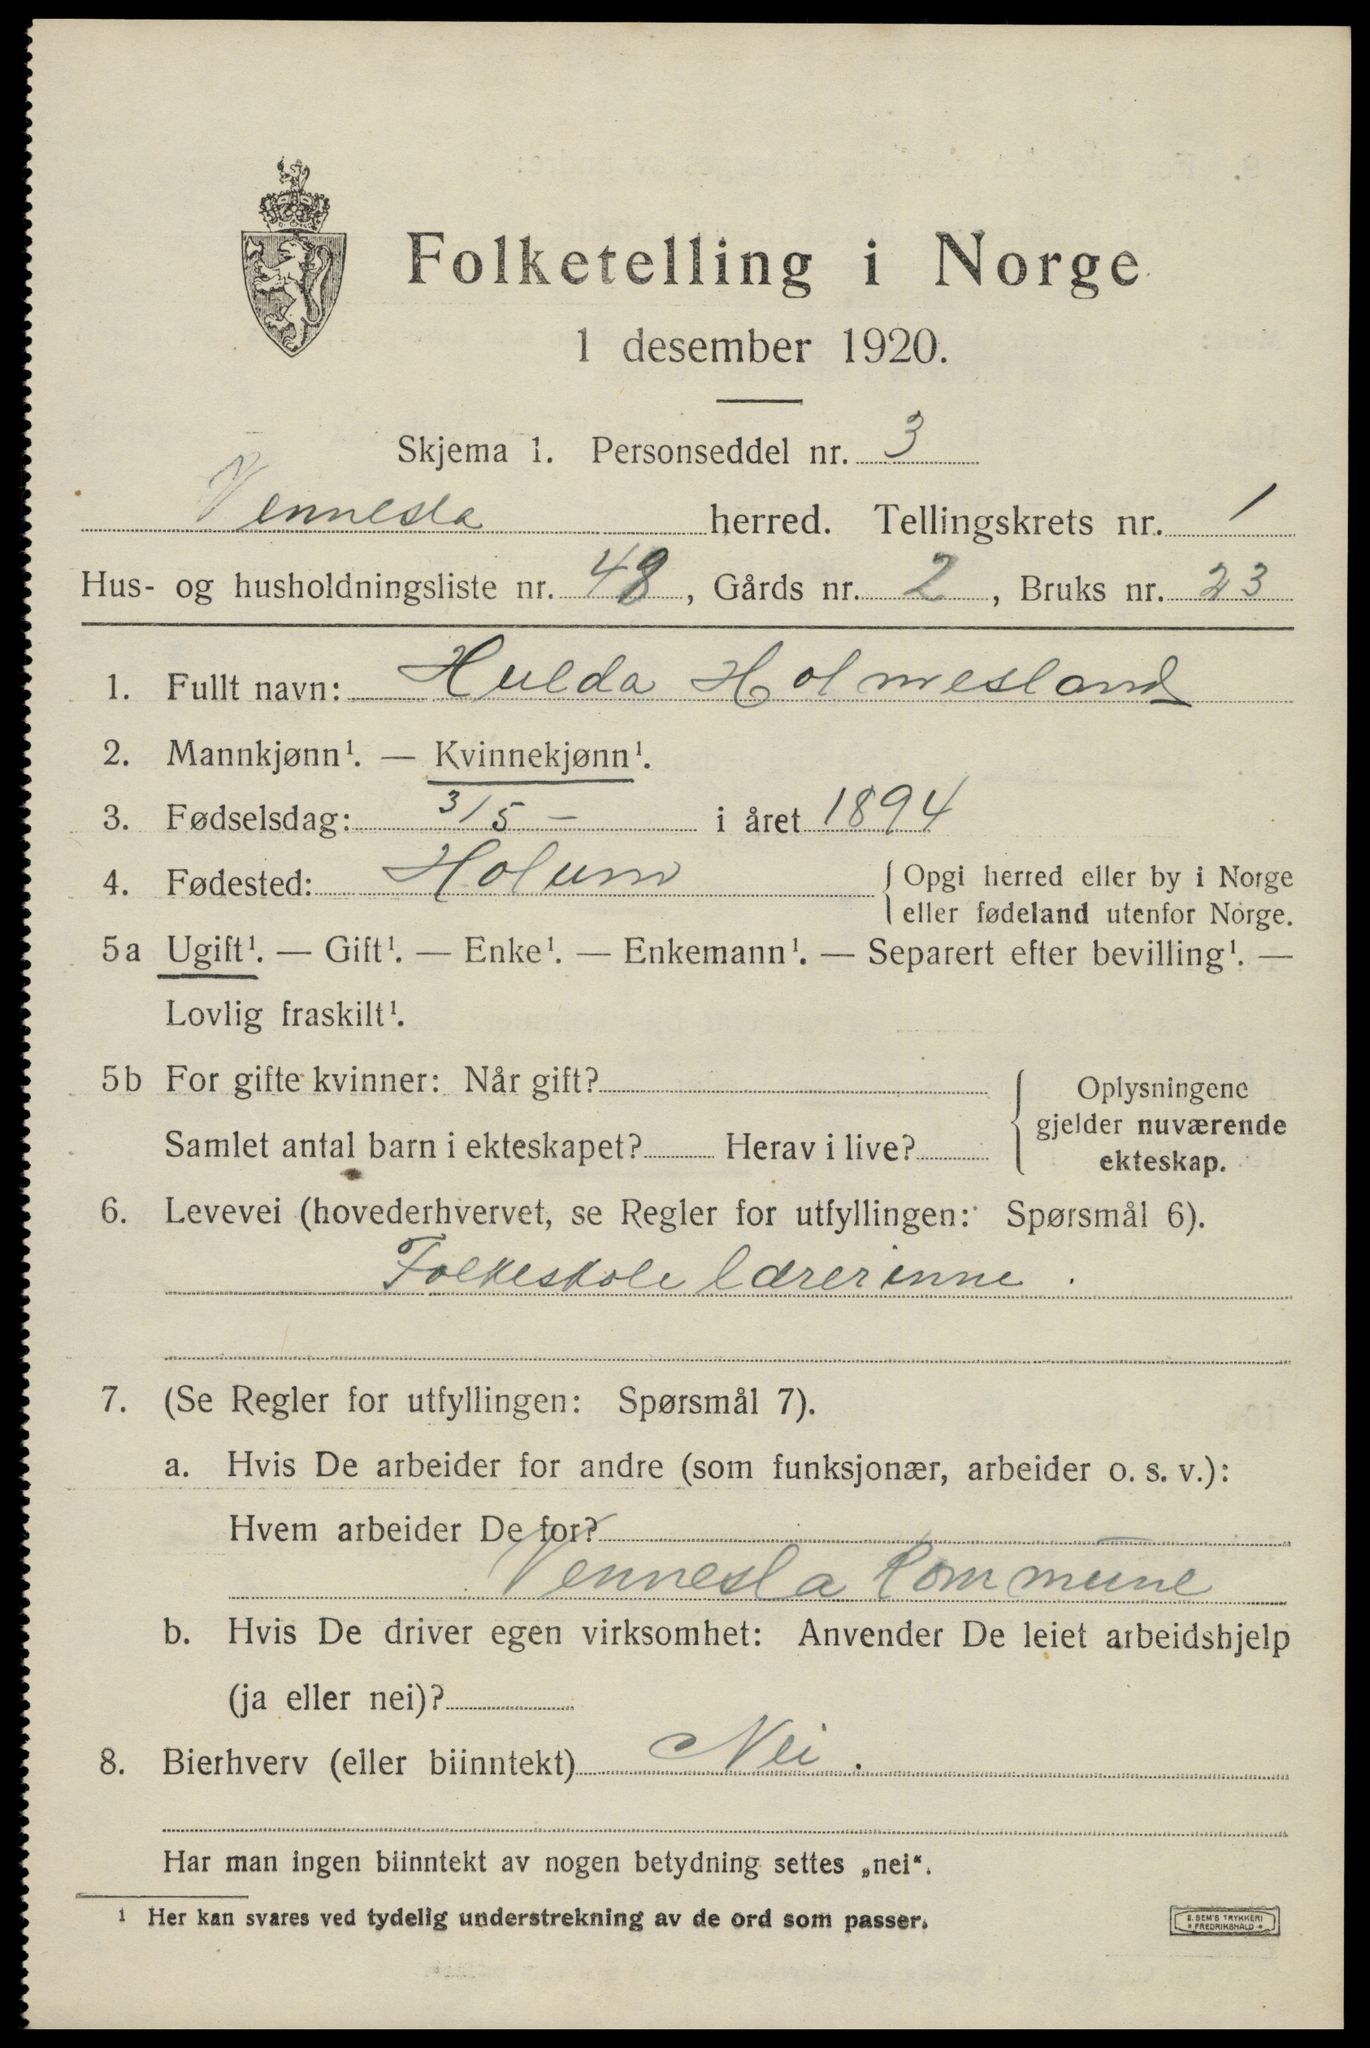 Folketelling i Norge
1 desember 1920.
Skjema 1. Personseddel nr. 3
Vennesla herred. Tellingskrets nr. 1
Hus- og husholdningsliste nr. 48, Gårds nr. 2, Bruks nr. 23
1. Fullt navn: Hulda Holmesland
2. Mannkjønn¹. — Kvinnekjønn¹.
3. Fødselsdag: 3/5 – i året 1894
4. Fødested: Holum { Opgi herred eller by i Norge
eller fødeland utenfor Norge.
5a Ugift¹. — Gift¹. — Enke¹. — Enkemann¹. — Separert efter bevilling¹. —
Lovlig fraskilt¹.
5b For gifte kvinner: Når gift?
Samlet antal barn i ekteskapet? Herav i live?
Oplysningene
gjelder nuværende
ekteskap.
6. Levevei (hovederhvervet, se Regler for utfyllingen: Spørsmål 6).
Folkeskole lærerinne.
7. (Se Regler for utfyllingen: Spørsmål 7).
a. Hvis De arbeider for andre (som funksjonær, arbeider o. s. v.):
Hvem arbeider De for?
Vennesla Kommune
b. Hvis De driver egen virksomhet: Anvender De leiet arbeidshjelp
(ja eller nei)?
8. Bierhverv (eller biinntekt) Nei.
Har man ingen biinntekt av nogen betydning settes „nei“.
¹ Her kan svares ved tydelig understrekning av de ord som passer.
E. SEM'S TRYKKERI
FREDRIKSHALD